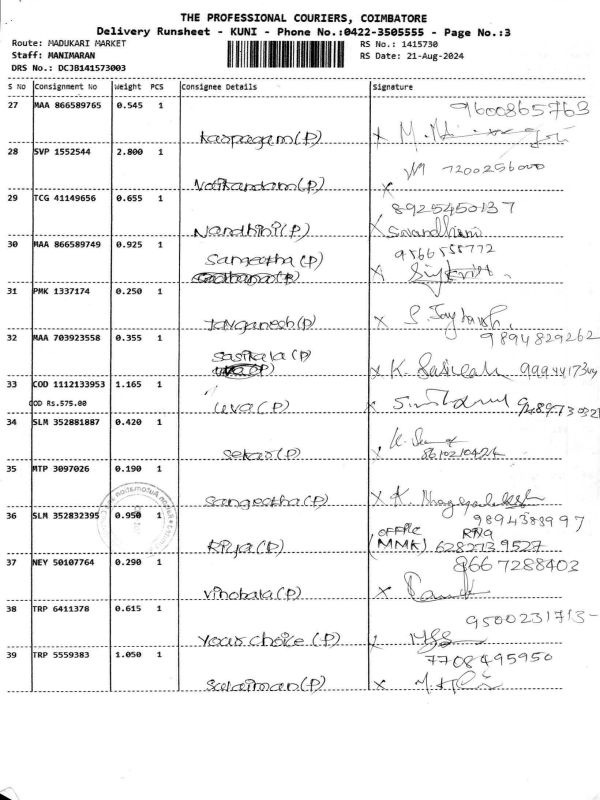 THE PROFESSIONAL COURIERS, COIMBATORE
Delivery Runsheet - KUNI - Phone No.:0422-3505555 - Page No.:3
Route: MADUKARI MARKET
RS No.: 1415730
Staff: MANIMARAN
RS Date: 21-Aug-2024
DRS No.: DCJB141573003
S No Consignment No Weight PCS Consignee Details Signature
27 MAA 866589765 0.545 1
9600865763
Karpagam(P) x
28 SVP 1552544 2.800 1
7200256000
x
29 TCG 41149656 0.655 1
8925450137
Nandhini(P) x
30 MAA 866589749 0.925 1
Sangeetha (P)
9566558772
x
31 PMK 1337174 0.250 1
Jaiganesh(P) x
32 MAA 703923558 0.355 1
9894829262
Sasikala (P)
x K.
33 COD 1112133953 1.165 1
COD Rs.575.00
Uva(P) x
34 SLM 352881887 0.420 1
Sekar(P) x
8610210424
35 MTP 3097026 0.190 1
Sangeetha(P) x K.
36 SLM 352832395 0.950 1
9894388997
OFFICE
Priya(P) (MMK) 6282739527
37 NEY 50107764 0.290 1
8667288403
Vinobala(P) x
38 TRP 6411378 0.615 1
9500231713-
Your choice (P)
39 TRP 5559383 1.050 1
7708495950
Sulaiman(P) x